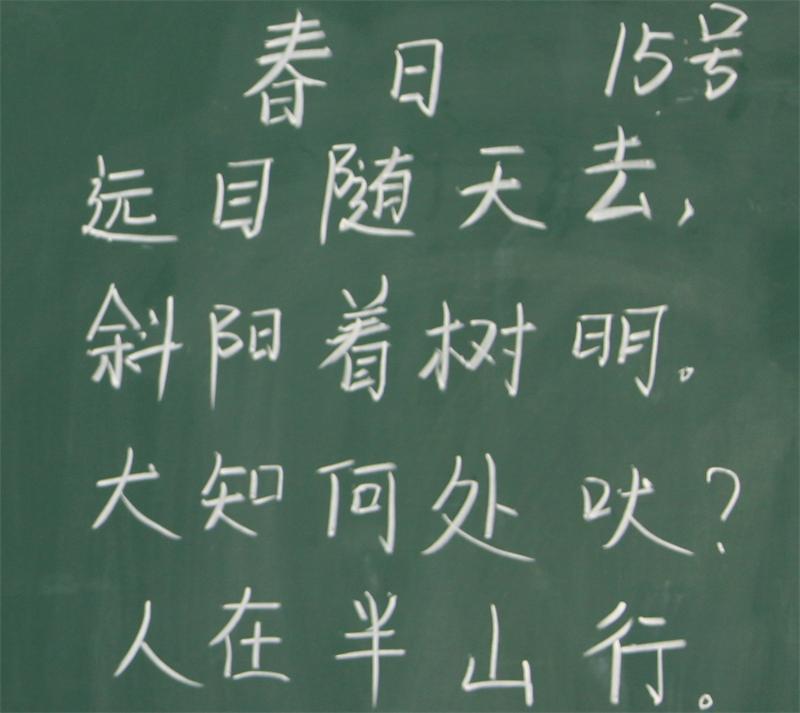 春日 15号
远目随天去，
斜阳着树明。
犬知何处吠？
人在半山行。